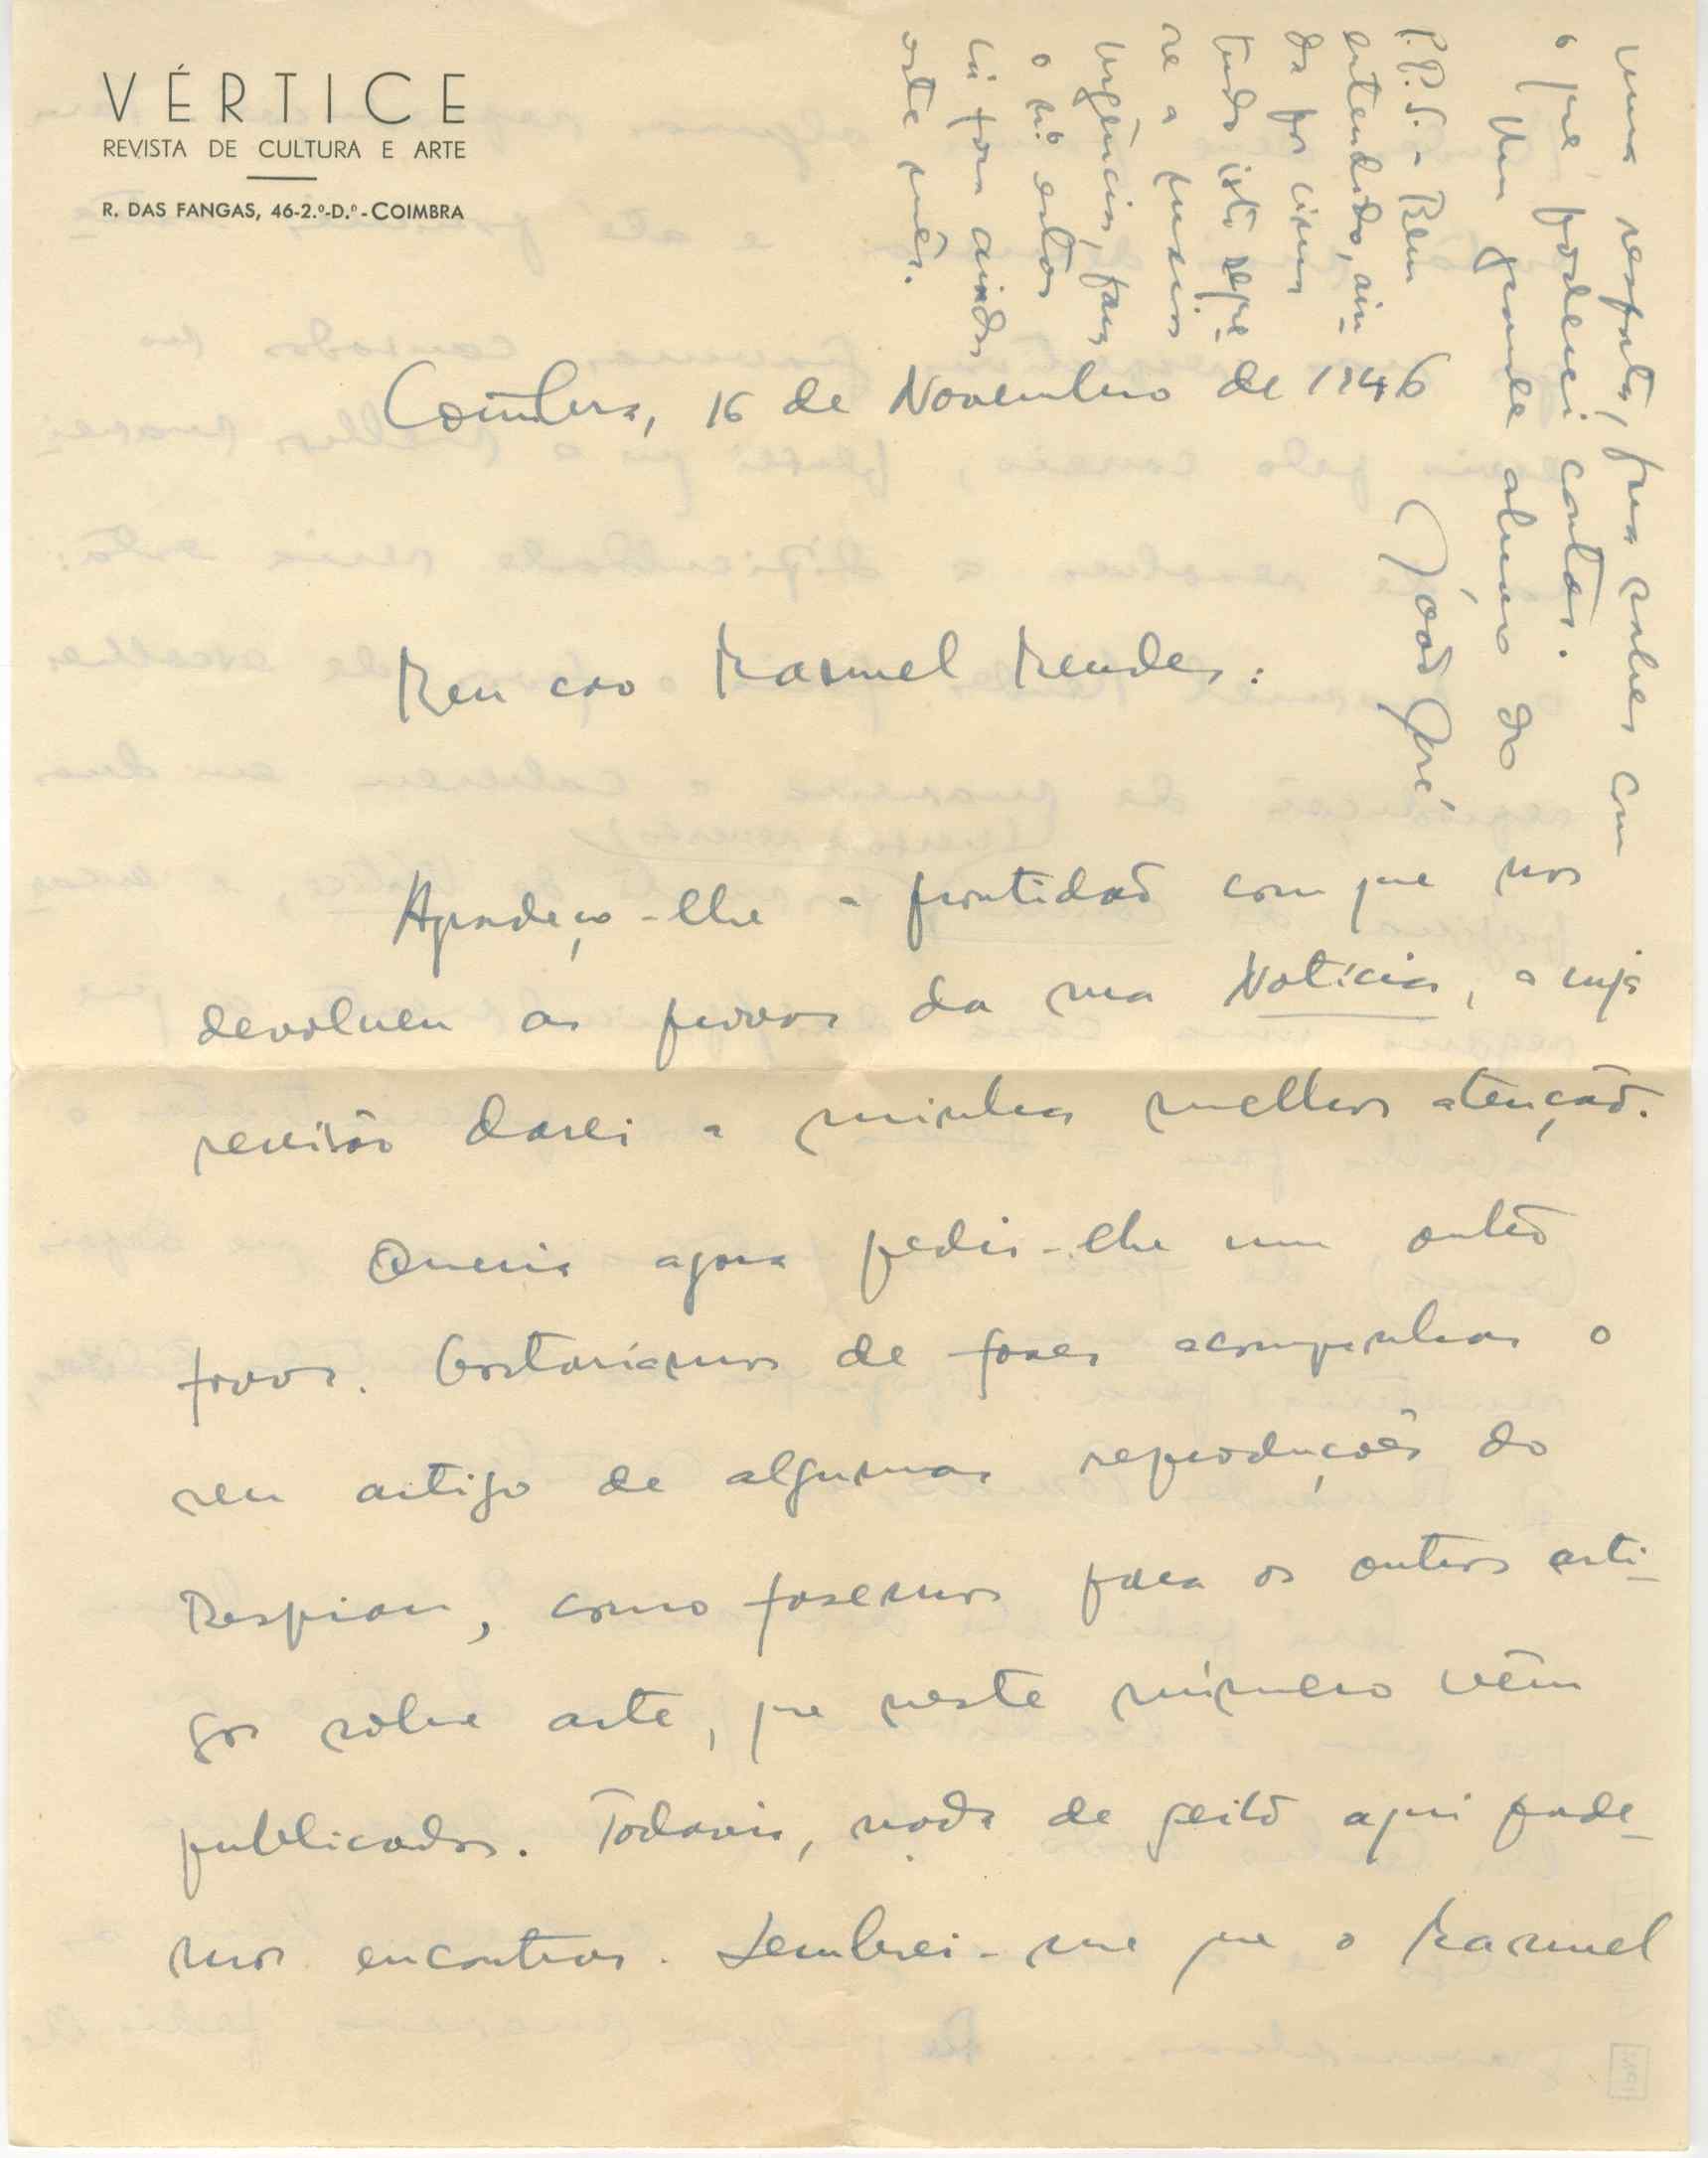 VÉRTICE
REVISTA DE CULTURA E ARTE
R. DAS FANGAS, 46-2.º-D.º - COIMBRA
Coimbra, 16 de Novembro de 1946
Meu caro Manuel Mendes:
Agradeço-lhe a prontidão com que nos
devolveu as provas da sua Notícia, a cuja
revisão darei a minha melhor atenção.
Queria agora pedir-lhe um outro
favor. Gostaríamos de fazer acompanhar o
seu artigo de algumas reproduções do
Despiau, como fazemos para os outros arti-
gos sôbre arte, que neste número vêm
publicados. Todavia, nada de geito aqui pude-
mos encontrar. Lembrei-me que o Manuel
uma resposta, para saber com
o que poderei contar.
Um grande abraço do
João José
P.P.S. - Bem
entendido, ain-
da por cima
tudo isto repe-
se a
urgência, para
o n.º estar
cá fora ainda
este mês.